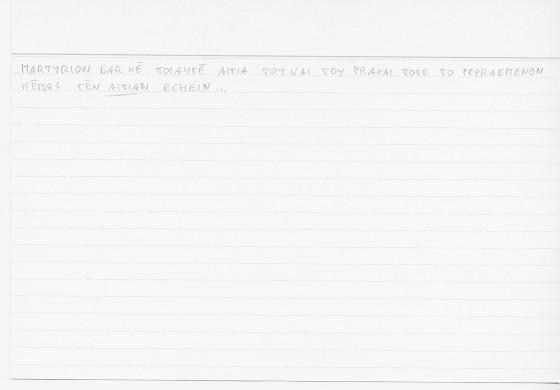 MARTYRION GAR HĒ TOIAYTĒ AITIA TOY KAI TOY PRAXAI TOTE TO PEPRAGMENON
HĒMAS TĒN AITIAN ECHEIN...